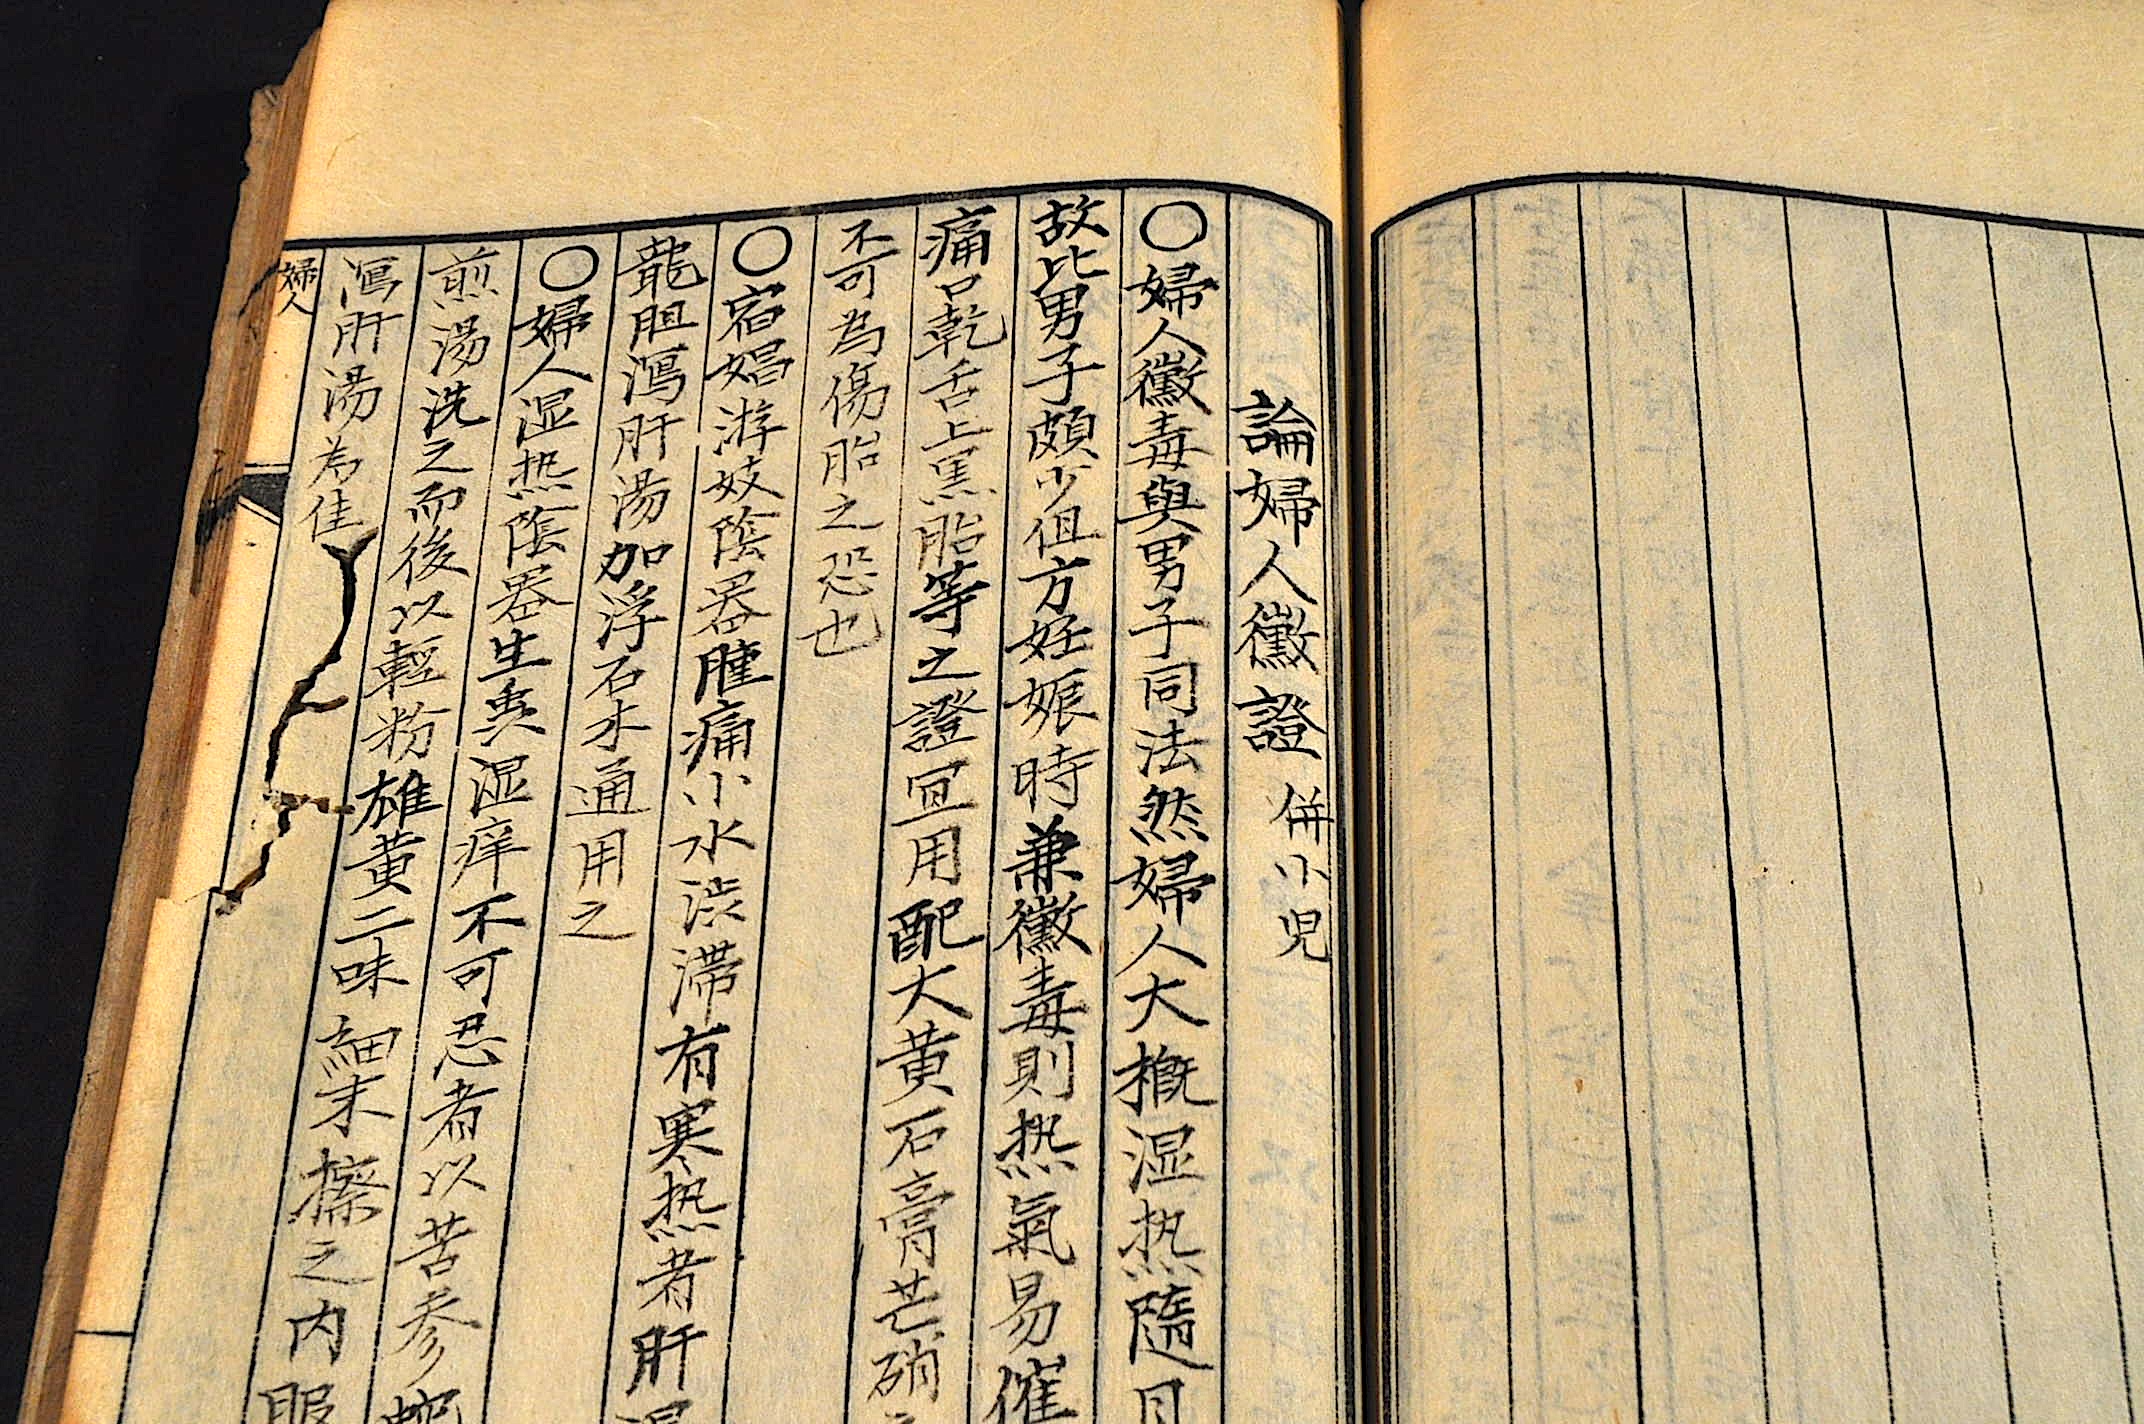 論婦人黴證 併小児
○婦人黴毒與男子同法然婦人大概湿热隨月
故比男子頗少但方妊娠時兼黴毒則热氣易催
痛口乾舌上黑胎等之證宜用配大黄石膏芒硝
不可為傷胎之恐也
○宿娼游妓陰器腫痛小水渋滞有寒热者肝湿
龍胆瀉肝湯加浮石木通用之
○婦人湿热陰器生異湿痒不可忍者以苦参蛇
煎湯洗之而後以輕粉雄黄二味細末擦之内服
瀉肝湯為佳
婦人